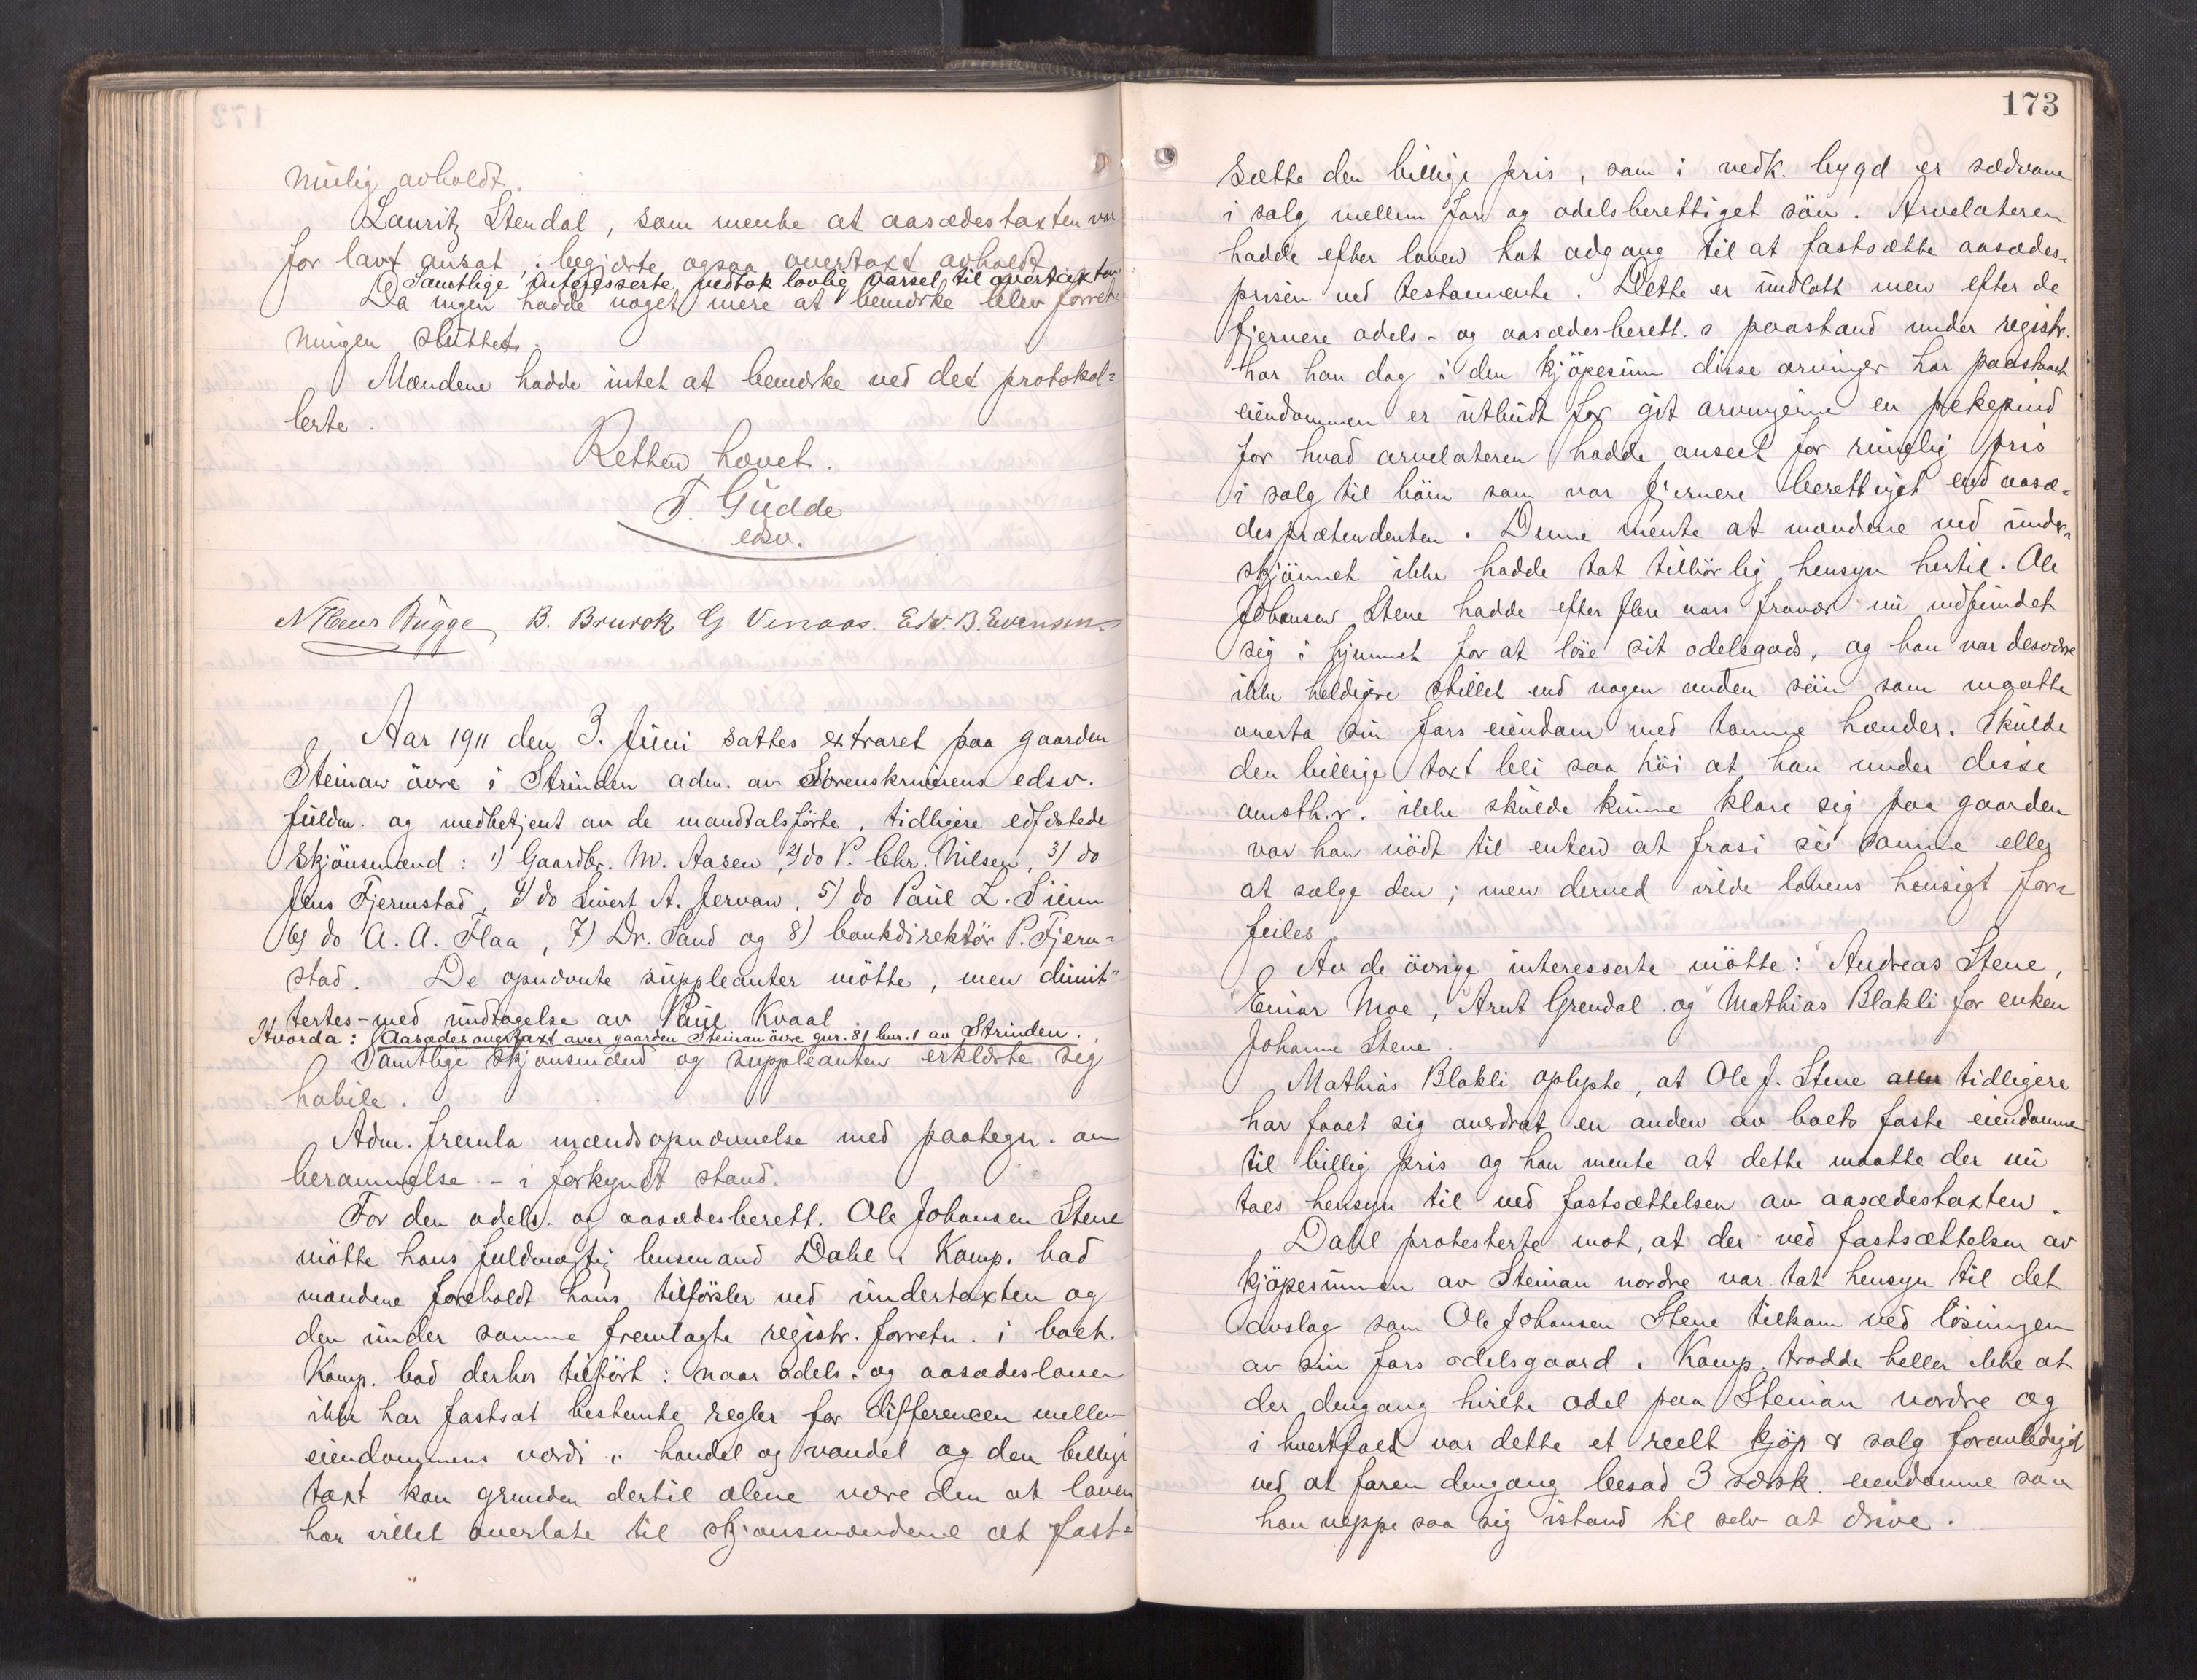 mulig avholdt.
Lauritz Stendal, som mente at aasædestaxten var
for lavt ansat, begjærte ogsaa overtaxt avholdt.
Samtlige interesserte vedtok lovlig varsel til overtaxten
Da ingen hadde noget mere at bemerke blev forret-
ningen sluttet.
Mændene hadde intet at bemerke ved det protokol-
lerte.
Retten hævet.
T. Gudde
edsv.
Bugge B. Brurok G Vinaas. Edv. B. Evensen
Aar 1911 den 3. Juni sattes extraret paa gaarden
Steinan övre i Strinden adm. av Sorenskriverens edsv.
fuldm. og medbetjent av de mandtalsförte, tidligere edfæstede
skjönsmænd: 1) Gaardbr. M. Aasen, 2) do P. Chr. Nilsen, 3) do
Jens Fjermstad, 4) do Sivert A. Jervan, 5) do Paul L. Siem
6) do A. A. Flaa, 7) Dr. Sand og 8) bankdirektör P. Fjerm-
stad. De opnævnte suppleanter mötte, men dimit-
tertes - med undtagelse av Paul Kvaal
Hvorda: Aasædesovertaxt over gaarden Steinan övre gnr. 81 bnr. 1 av Strinden.
Samtlige skjönsmænd og suppleanten erklærte sig
habile.
Adm. fremla mændsopnævnelse med paategn. om
berammelse - i forkyndt stand.
For den odels- og aasædesberett. Ole Johansen Stene
mötte hans fuldmægtig husmand Dahl. Komp. bad
mændene foreholdt hans tilförsler ved undertaxten og
den under samme fremlagte registr. forretn. i boet.
Komp. bad derhos tilfört: naar odels- og aasædesloven
ikke har fastsat bestemte regler for differencen mellem
eiendommens værdi i handel og vandel og den billige
taxt kan grunden dertil alene være den at loven
har villet overlate til skjönsmændene at fast-
173
sætte den billige pris, som i vedk. bygd er sædvane
i salg mellem far og odelsberettiget sön. Arvelateren
hadde efter loven hat adgang til at fastsætte aasædes-
prisen ved testamente. Dette er undlatt men efter de
fjernere odels- og aasædesberett.s paastand under registr.
har han dog i den kjöpesum disse arvinger har paastaaet
eiendommen er utbudt for git arvingerne en pekepind
for hvad arvelateren hadde anseet for rimelig pris
i salg til börn som var fjernere berettiget end aasæ-
desprætendenten. Denne mente at mændene ved under-
skjönnet ikke hadde tat tilbörlig hensyn hertil. Ole
Johansen Stene hadde efter flere aars fravær nu indfundet
sig i hjemmet for at löse sit odelsgods, og han var desværre
ikke heldigere stillet end nogen anden sön som maatte
overta sin fars eiendom med tomme hænder. Skulde
den billige taxt bli saa höi at han under disse
omsth.r. ikke skulde kunne klare sig paa gaarden
var han nödt til enten at frasi sig samme eller
at sælge den; men derved vilde lovens hensigt for-
feiles.
Av de övrige interesserte mötte: Andreas Stene,
Einar Moe, Arnt Grendal og Mathias Blakli for enken
Johanne Stene.
Mathias Blakli oplyste, at Ole J. Stene tidligere
har faaet sig overdrat en anden av boets faste eiendomme
til billig pris og han mente at dette maatte der nu
taes hensyn til ved fastsættelsen av aasædestaxten.
Dahl protesterte mot, at der ved fastsættelsen av
kjöpesummen av Steinan nordre var tat hensyn til det
avslag som Ole Johansen Stene tilkom ved lösningen
av sin fars odelsgaard. Komp. trodde heller ikke at
der dengang hvilte odel paa Steinan nordre og
i hvertfald var dette et reelt kjöp & salg foranlediget
ved at faren dengang besad 3 særsk. eiendomme som
han neppe saa sig istand til selv at drive.